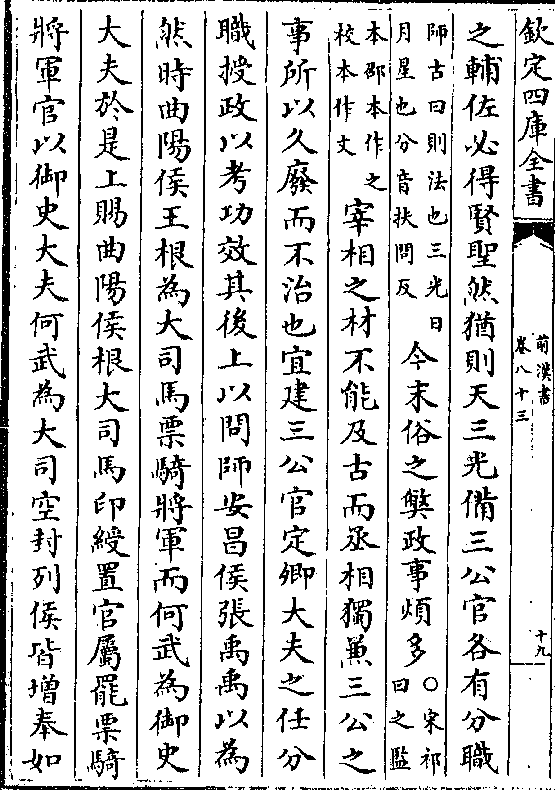 欽定四庫全書
前漢書
卷八十三
十九
之輔佐必得賢聖然猶則天三光備三公官各有分職
師古曰則法也三光日
月星也分音扶問反
今末俗之弊政事煩多
○宋祁
曰之監
本邵本作之
校本作文
宰相之材不能及古而丞相獨兼三公之
事所以久廢而不治也宜建三公官定卿大夫之任分
職授政以考功效其後上以問師安昌侯張禹禹以為
然時曲陽侯王根為大司馬票騎將軍而何武為御史
大夫於是上賜曲陽侯根大司馬印綬置官屬罷票騎
將軍官以御史大夫何武為大司空封列侯皆增奉如